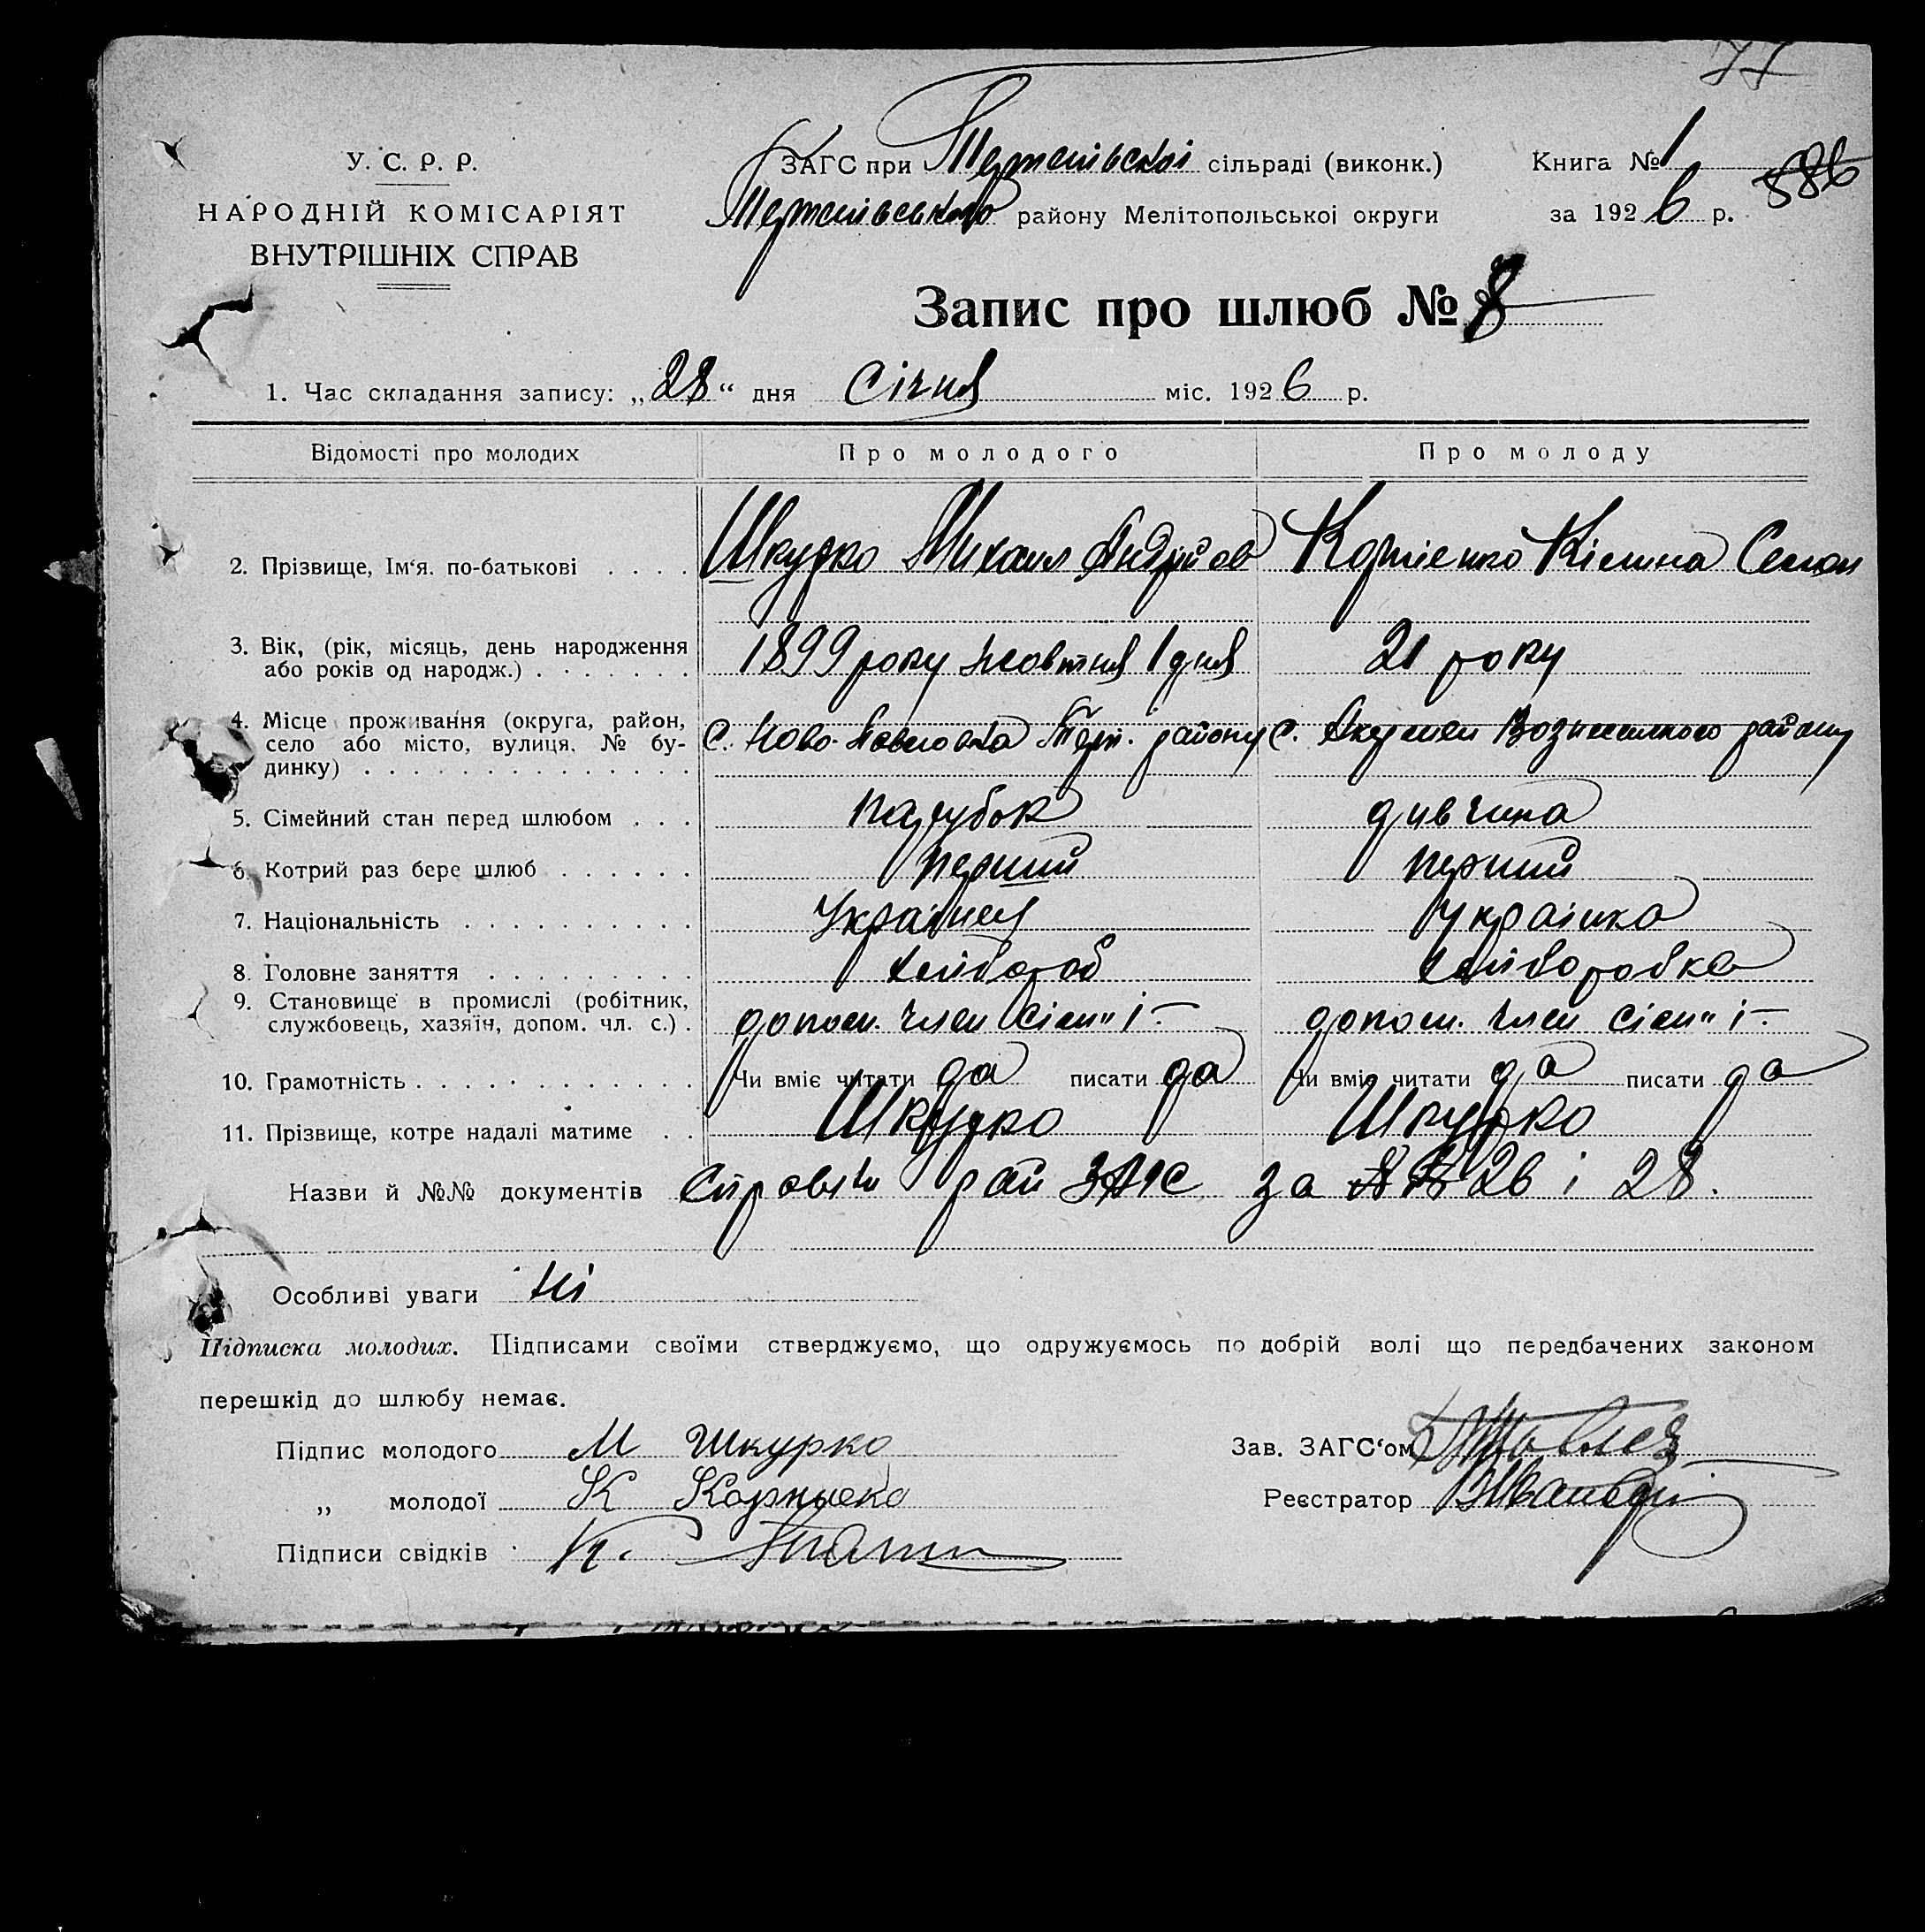 77
У. С. Р. Р.
НАРОДНІЙ КОМІСАРІЯТ
ВНУТРІШНІХ СПРАВ
ЗАГС при Терпенівской сільраді (виконк.)
Терпенівського району Мелітопольськоі округи
Книга № 1
за 1926 р.
Запис про шлюб № 8
1. Час складання запису: „28“ дня Січня міс. 1926 р.
Відомості про молодих Про молодого Про молоду
2. Прізвище, Ім‘я. по-батькові . . . . Шкурко Михаил Андрійов Корнієнко Килина Семон
3. Вік, (рік, місяць, день народження
або років од народж.) . . . . . . . 1899 року жовтня 1 дня 21 року
4. Місце проживання (округа, район,
село або місто, вулиця, № бу-
динку) . . . . . . . . . . . . . . с. Ново-Павловка Терп. району с. району
5. Сімейний стан перед шлюбом . . . парубок дивчина
6. Котрий раз бере шлюб . . . . . . перший перший
7. Національність . . . . . . . . . . Українець Українка
8. Головне заняття . . . . . . . . . хлібороб хлiборобка
9. Становище в промислі (робітник,
службовець, хазяїн, допом. чл. с.) . допом. член сім"і допом. член сім"і
10. Грамотність . . . . . . . . . . . . Чи вміє читати да писати да Чи вміє читати да писати да
11. Прізвище, котре надалі матиме . . Шкурко Шкурко
Назви й №№ документів рай ЗАГС за №№ 26 і 28.
Особливі уваги Ні
Підписка молодих. Підписами своїми стверджуємо, що одружуємось по добрій волі що передбачених законом
перешкід до шлюбу немає.
Підпис молодого М Шкурко Зав. ЗАГС‘ом
„ молодої К Реєстратор
Підписи свідків К.